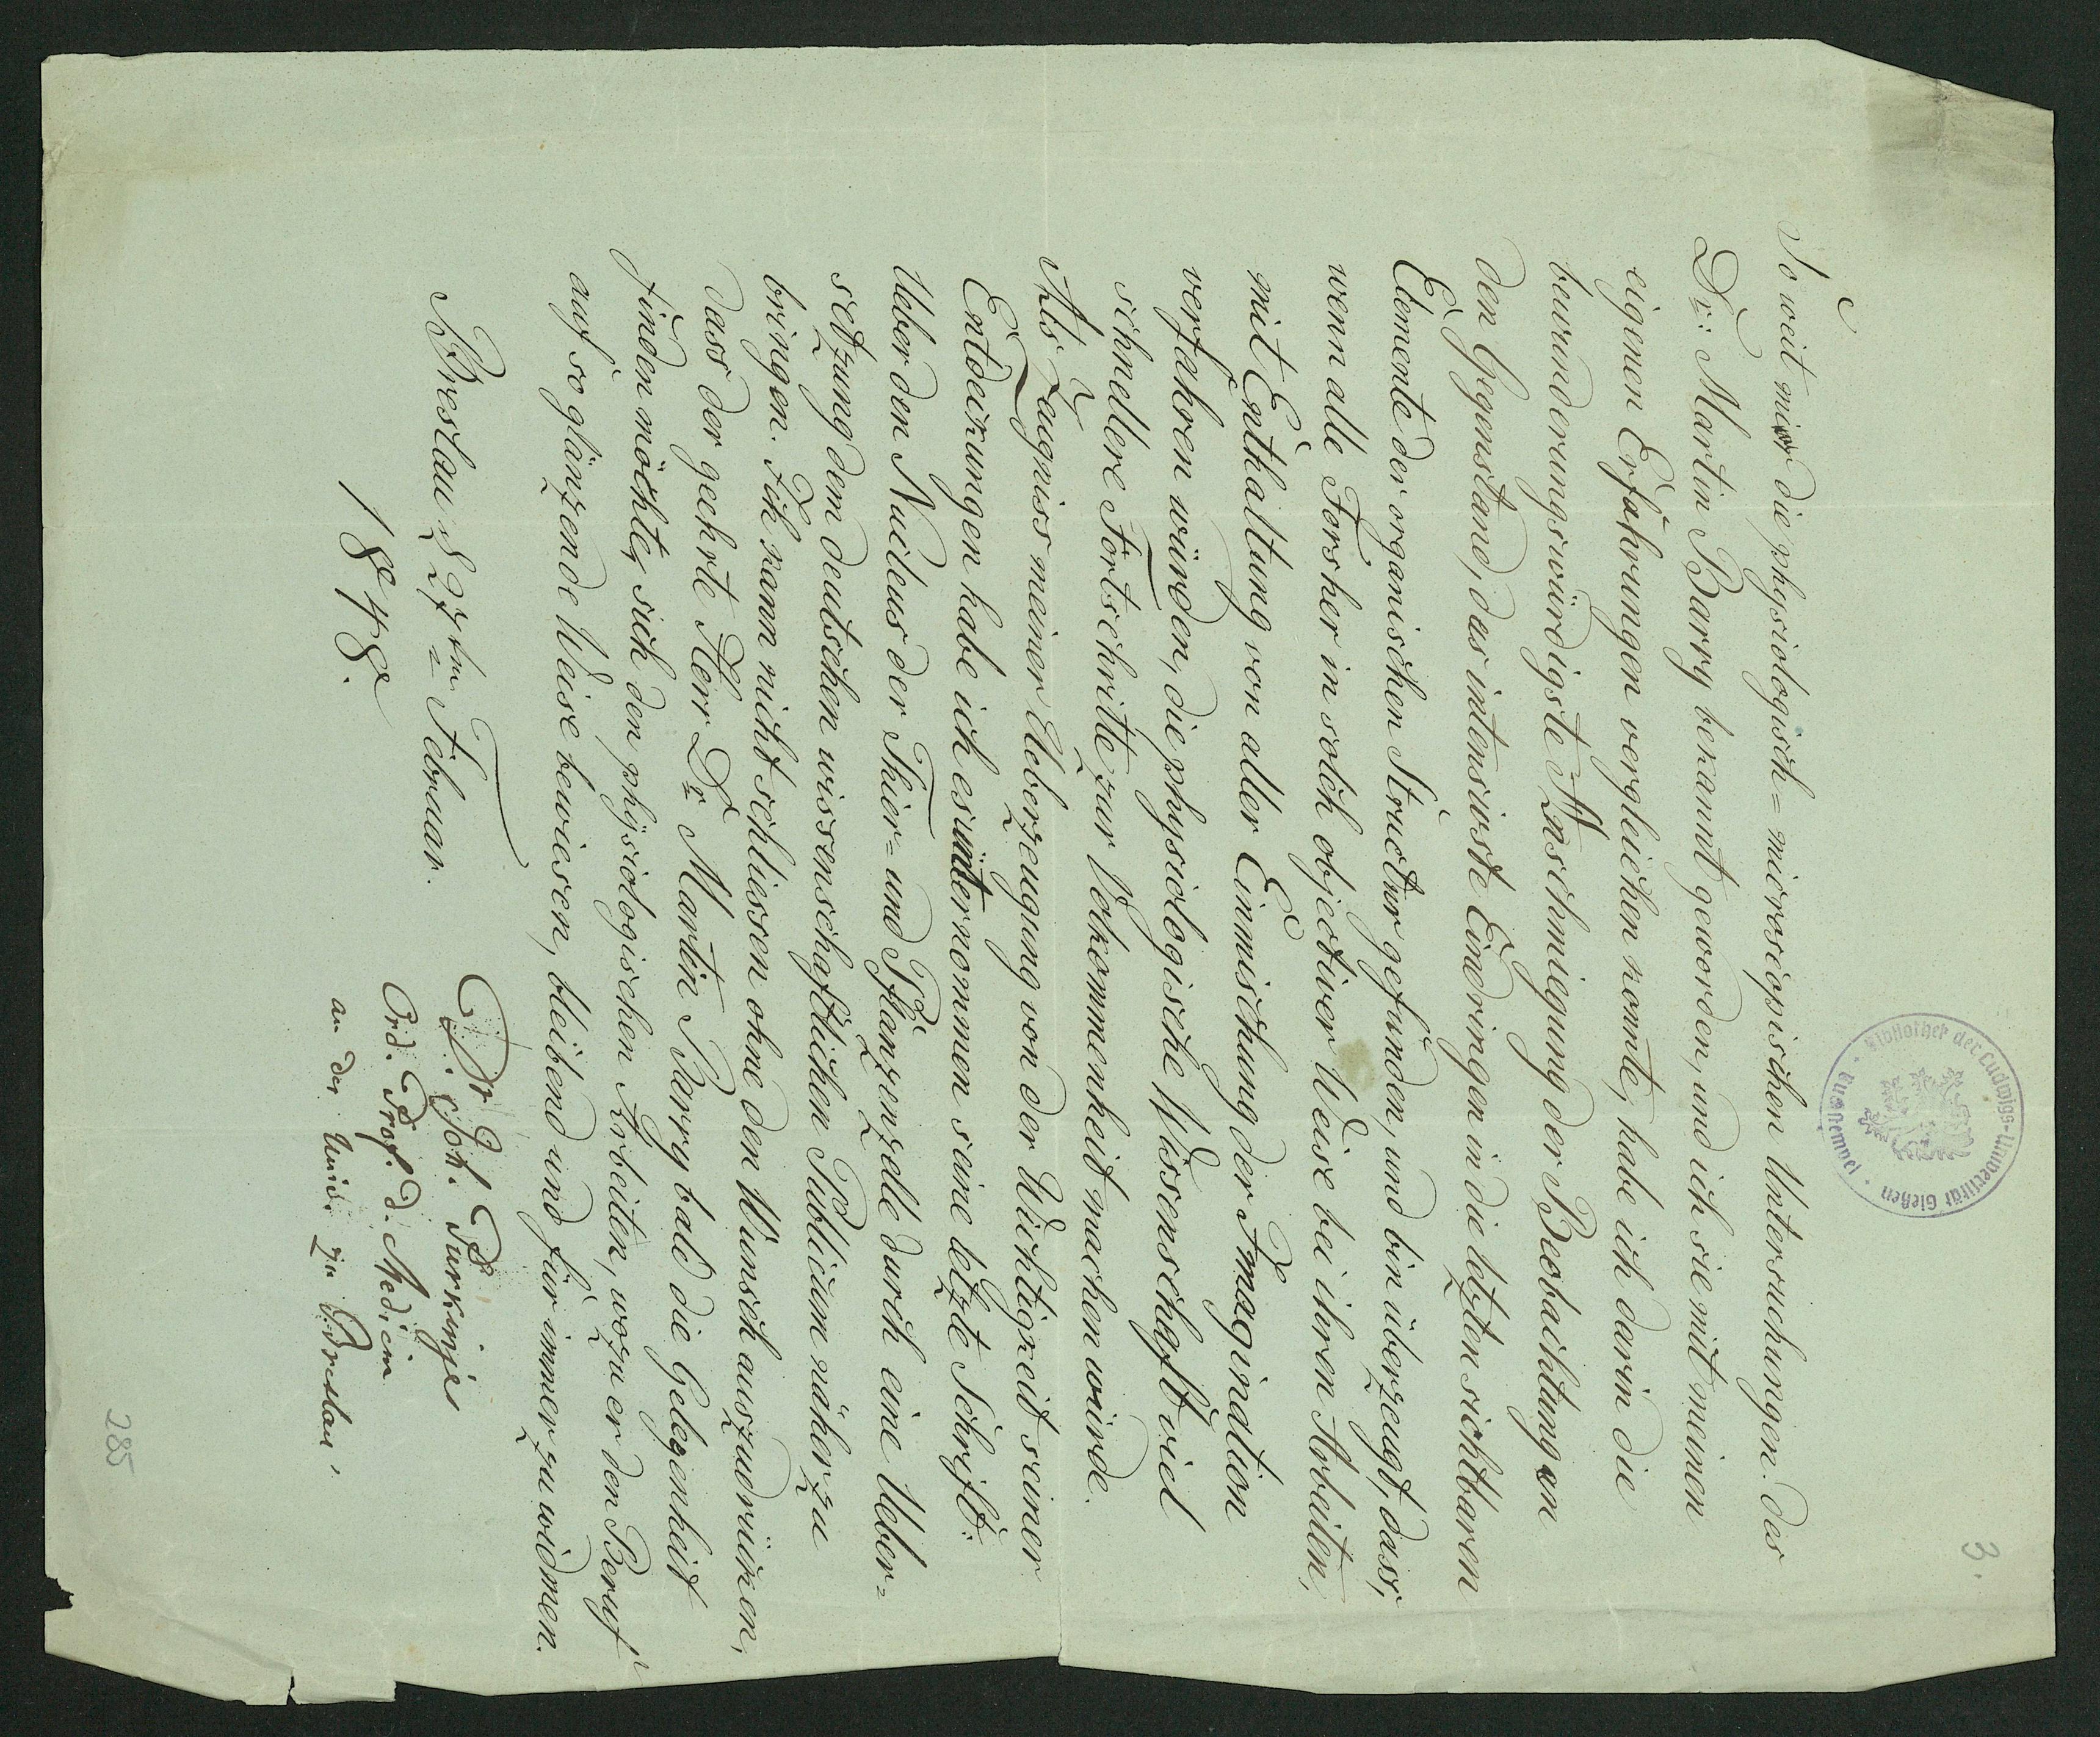 3.
Bibliothek der Ludwigs-Universität Gießen · Tauschstempel ·
So weit mir die physiologisch=microscopischen Untersuchungen des
Dr: Martin Barry bekannt geworden, und ich sie mit meinen
eigenen Erfahrungen vergleichen konnte, habe ich darin die
bewunderungswürdigste Anschmiegung der Beobachtung an
den Gegenstand, das intensivste Eindringen in die letzten sichtbaren
Elemente der organischen Structur gefunden, und bin überzeugt, dass,
wenn alle Forscher in solch objectiver Weise bei ihren Arbeiten,
mit Enthaltung von aller Einmischung der Imagination
verfahren würden, die physiologische Wissenschaft viel
schnellere Fortschritte zur Volkommenheit machen würde.
Als Zeugniss meiner Ueberzeugung von der Wichtigkeit seiner
Entdeckungen habe ich es unternommen seine letzte Schrift:
Ueber den Nucleus der Thier= und Pflanzenzelle durch eine Ueber=
setzung dem deutschen wissenschaftlichen Publicum näher zu
bringen. Ich kann nicht schliessen ohne den Wunsch auszudrücken,
dass der geehrte Herr Dr Martin Barry bald die Gelegenheit
finden möchte, sich den physiologischen Arbeiten, wozu er den Beruf
auf so glänzende Weise bewiesen, bleibend und für immer zu widmen.
Breslau d 27ten Februar.
1848.
Dr. Joh. Purkinje
Ord. Prof. d. Medicin
an der Univ. zu Breslau,
285